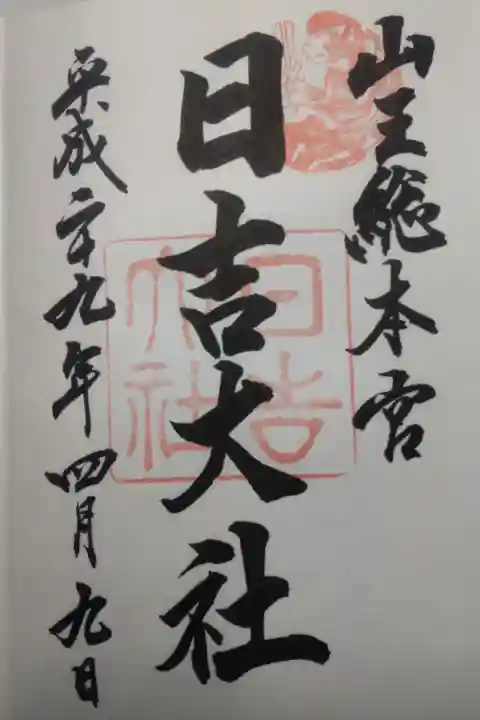 山王総本宮
日吉大社
日吉大社
平成二十九年四月九日